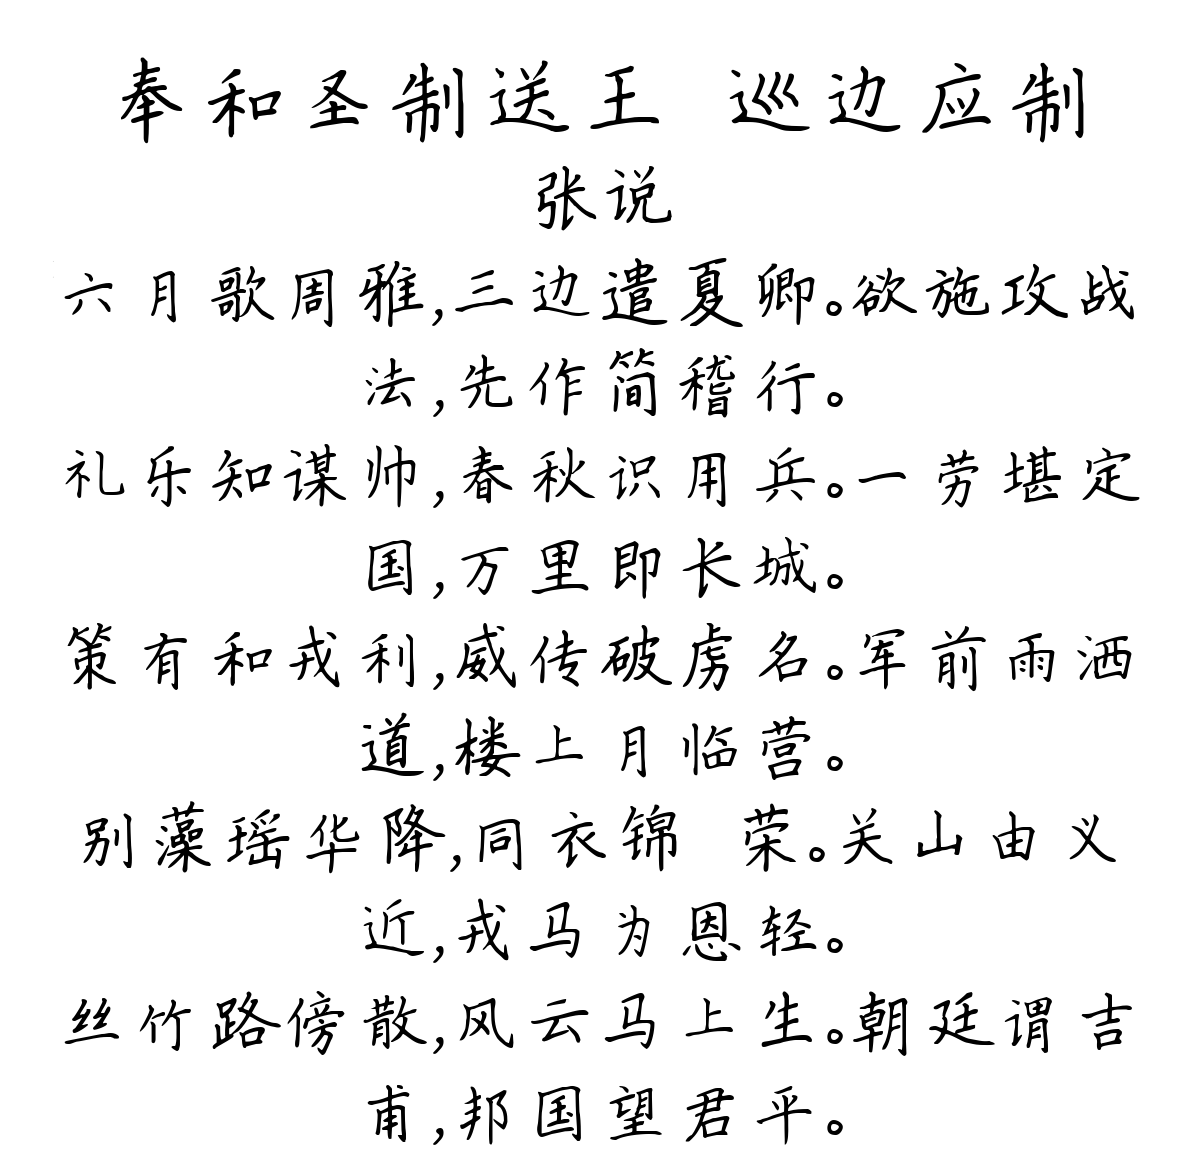 奉和圣制送王 巡边应制
张说
六月歌周雅,三边遣夏卿。欲施攻战
法,先作简稽行。
礼乐知谋帅,春秋识用兵。一劳堪定
国,万里即长城。
策有和戎利,威传破虏名。军前雨洒
道,楼上月临营。
别藻瑶华降,同衣锦 荣。关山由义
近,戎马为恩轻。
丝竹路傍散,风云马上生。朝廷谓吉
甫,邦国望君平。